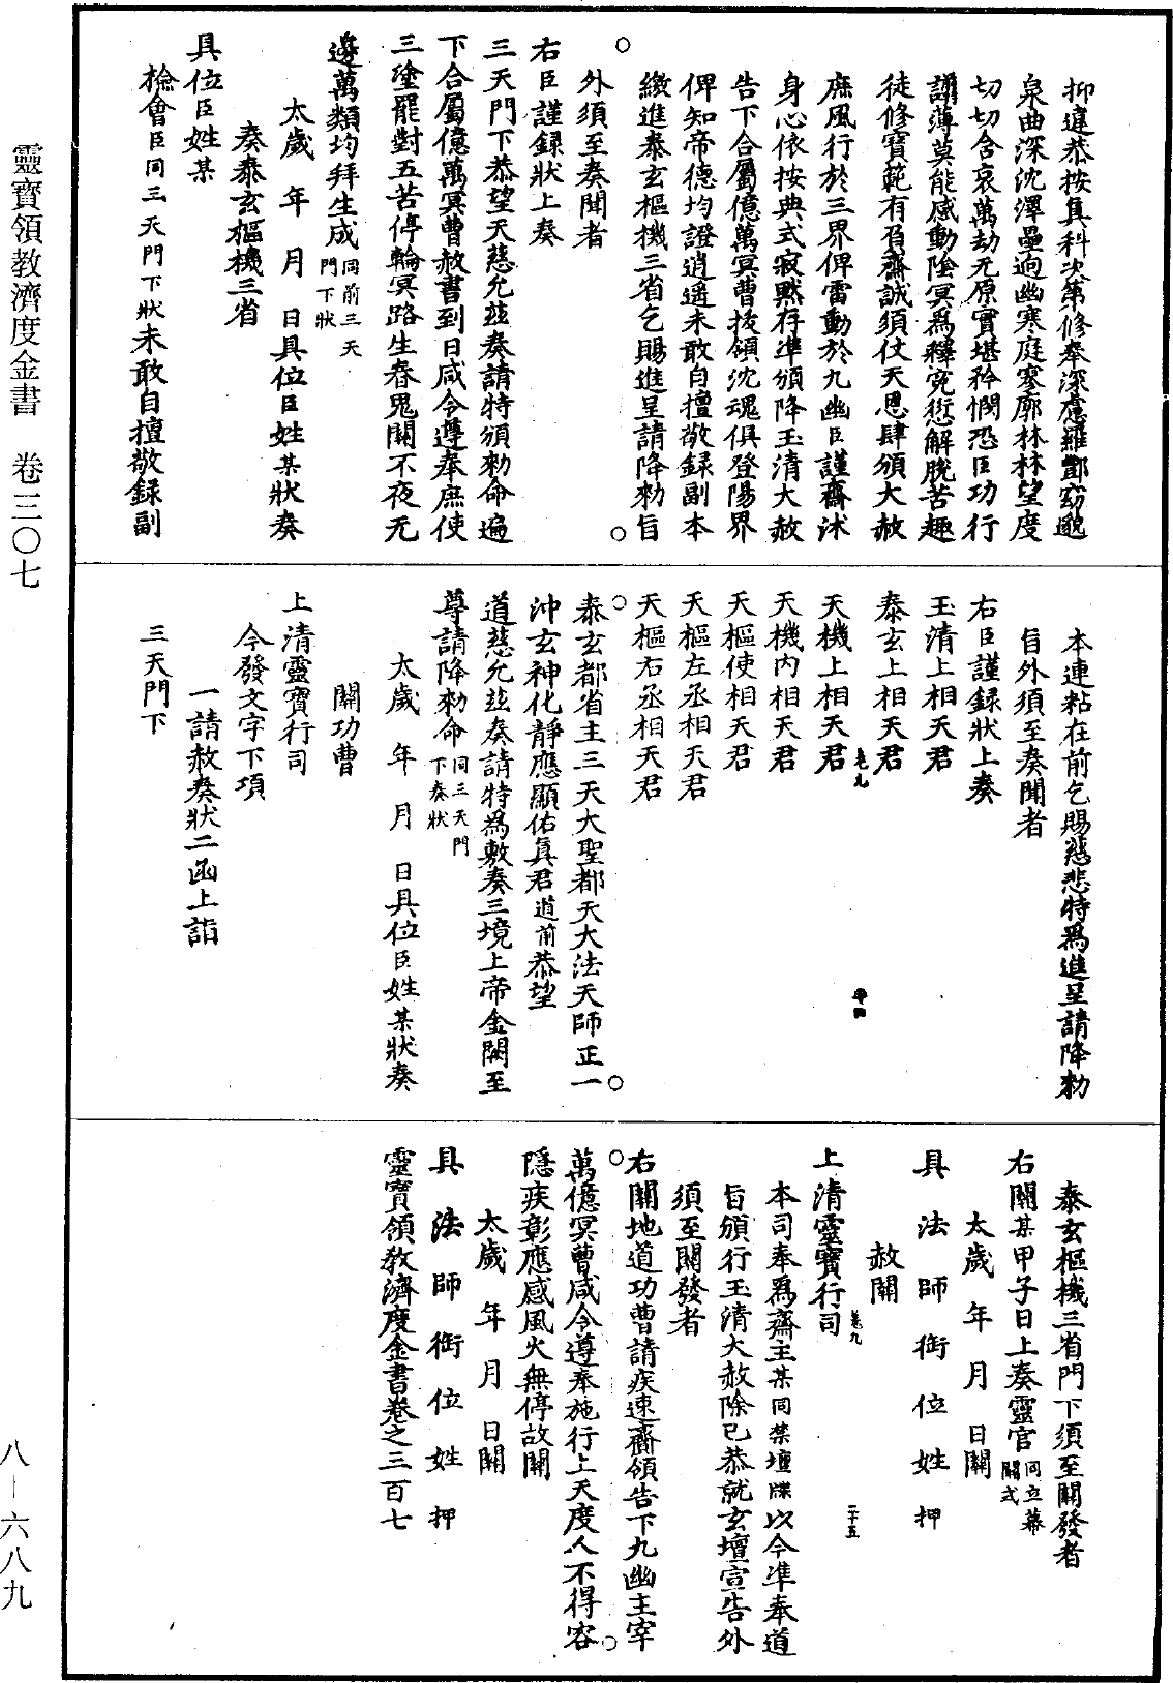 抑違恭按真科次第修奉深慮羅酆窈邈
泉曲深沈澤壘逈幽寒庭寥廓林林望度
切切含哀萬劫无原實堪矜憫恐臣功行
譾薄莫能感動陰冥為釋寃愆解脫苦趣
徒修寶範有負齋誠須仗天恩肆頒大赦
庶風行於三界俾雷動於九幽臣謹齋沐
身心依按典式寂默存準頒降玉清大赦
告下合屬億萬冥曹拔領沈魂俱登陽界
俾知帝德均證逍遥未敢自擅敬録副本
繳進泰玄樞機三省乞賜進呈請降勑旨
外須至奏聞者
右臣謹録狀上奏
三天門下恭望天慈允兹奏請特頒勑命遍
下合屬億萬冥曹赦書到日咸令遵奉庶使
三塗罷對五苦停輪冥路生春鬼關不夜无
邊萬類均拜生成同前三天門下狀
太歲 年 月 日具位臣姓某狀奏
奏泰玄樞機三省
具位臣姓某
檢會臣同三天門下狀未敢自擅敬録副
本連粘在前乞賜慈悲特為進呈請降勑
旨外須至奏聞者
右臣謹録狀上奏
玉清上相天君
泰玄上相天君
卷九
十四
天機上相天君
天機內相天君
天樞使相天君
天樞左丞相天君
天樞右丞相天君
泰玄都省主三天大聖都天大法天師正一
沖玄神化靜應顯佑真君道前恭望
道慈允兹奏請特為敷奏三境上帝金闕至
尊請降勑命同三天門下奏狀
太歲 年 月 日具位臣姓某狀奏
關功曹
上清靈寶行司
今發文字下項
一請赦奏狀二函上詣
三天門下
泰玄樞機三省門下須至關發者
右關某甲子日上奏靈官同立幕關式
太歲 年 月 日關
具 法 師 銜 位 姓 押
赦關
上清靈寶行司
卷九
二十五
本司奉為齋主某同禁壇牒以今準奉道
旨頒行玉清大赦除已恭就玄壇宣告外
須至關發者
右關地道功曹請疾速齋領告下九幽主宰
萬億冥曹咸令遵奉施行上天度人不得容
隱疾彰應感風火無停故關
太歲 年 月 日關
具 法 師 銜 位 姓 押
靈寶領教濟度金書卷之三百七
靈寶領教濟度金書 卷三〇七
八－六八九